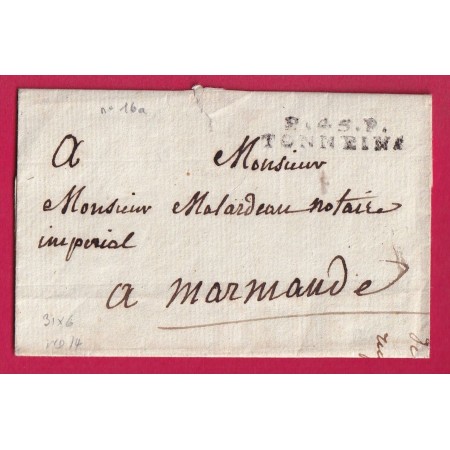 no 16a
P.45.P.
TONNEINS
A Monsieur
Monsieur Malardeau notaire
imperial
a marmande
31x6